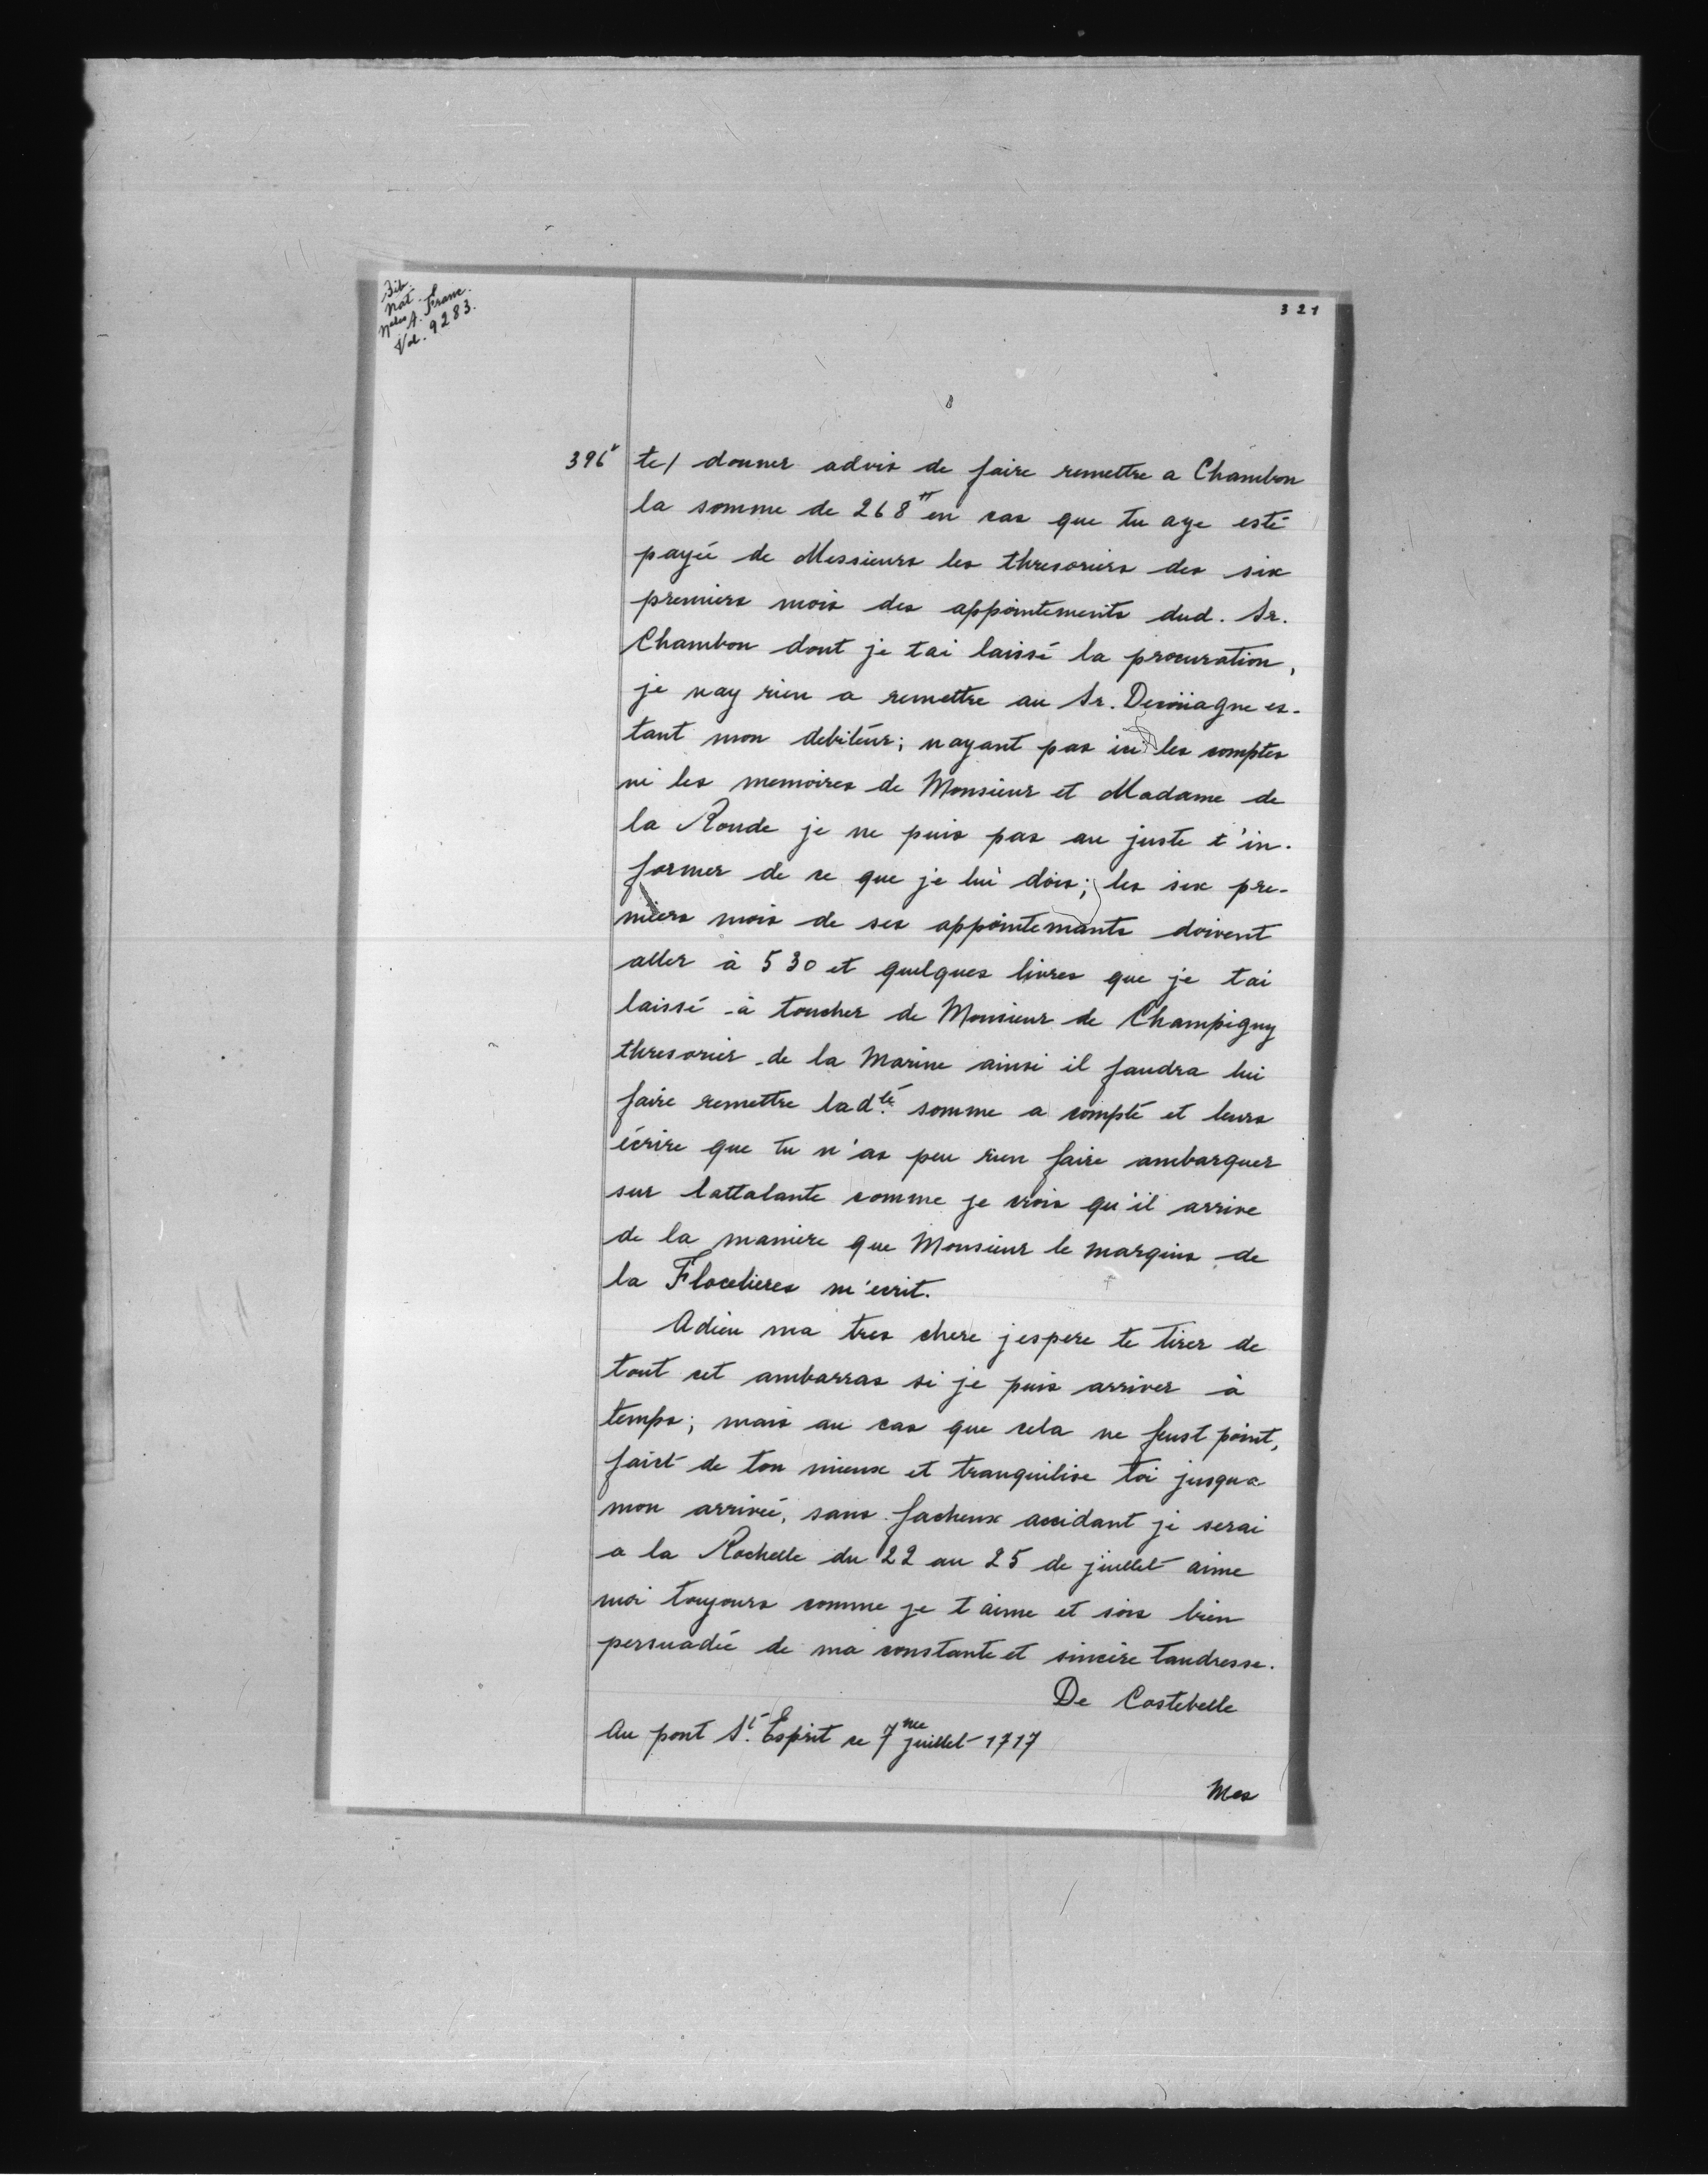 Bib.
Nat.
Nelles A. Franc.
Vol. 9283.
321
396v te/ donner advis de faire remettre a Chambon
la somme de 268tt en cas que tu aye esté
payée de Messieurs les thresoriers des six
premiers mois des appointements dud. Sr.
Chambon dont je tai laissé la procuration,
je nay rien a remettre au Sr. es-
tant mon debiteur; nayant pas ici les comptes
ni les memoires de Monsieur et Madame de
la Ronde je ne puis pas au juste t'in-
former de ce que je lui dois; les six pre-
miers mois de ses appointemants doivent
aller à 530 et quelques livres que je tai
laissé à toucher de Monsieur de Champigny
thresorier de la Marine ainsi il faudra lui
faire remettre ladte. somme a compte et leurs
écrire que tu n'as peu rien faire ambarquer
sur lattalante comme je crois qu'il arrive
de la maniere que Monsieur le marquis de
la Flocelieres m'ecrit.
Adieu ma tres chere jespere te tirer de
tout cet ambarras si je puis arriver à
temps; mais au cas que cela ne feust point,
faict de ton mieux et tranquilise toi jusqua
mon arrivée, sans facheux accidant je serai
a la Rochelle du 22 au 25 de juillet aime
moi toujours comme je t aime et sois bien
persuadée de ma constante et sincère tandresse.
De Costebelle
Au pont St. Esprit ce 7me juillet 1717
Mes